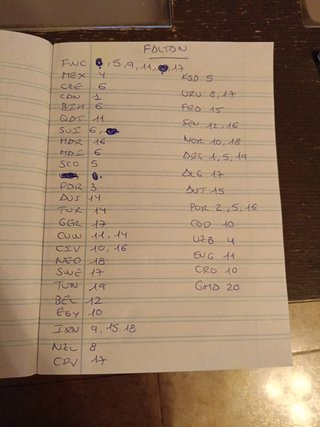 FALTAN
FWC , 5, 9, 11, , 17
MEX 4
CZE 6
CAN 1
BIH 6
QAT 11
SUI 6,
MAR 16
HAI 6
SCO 5
PAR 3
AUS 14
TUR 14
GER 17
CUW 11, 14
CIV 10, 16
NED 18
SWE 17
TUN 19
BEL 12
EGY 10
IRN 9, 15, 18
NZL 8
CPV 17
KSA 5
URU 8, 17
FRA 15
SEN 12, 16
NOR 10, 18
ARG 1, 5, 19
ALG 17
AUT 15
POR 2, 5, 16
COD 10
UZB 4
ENG 11
CRO 10
GHA 20